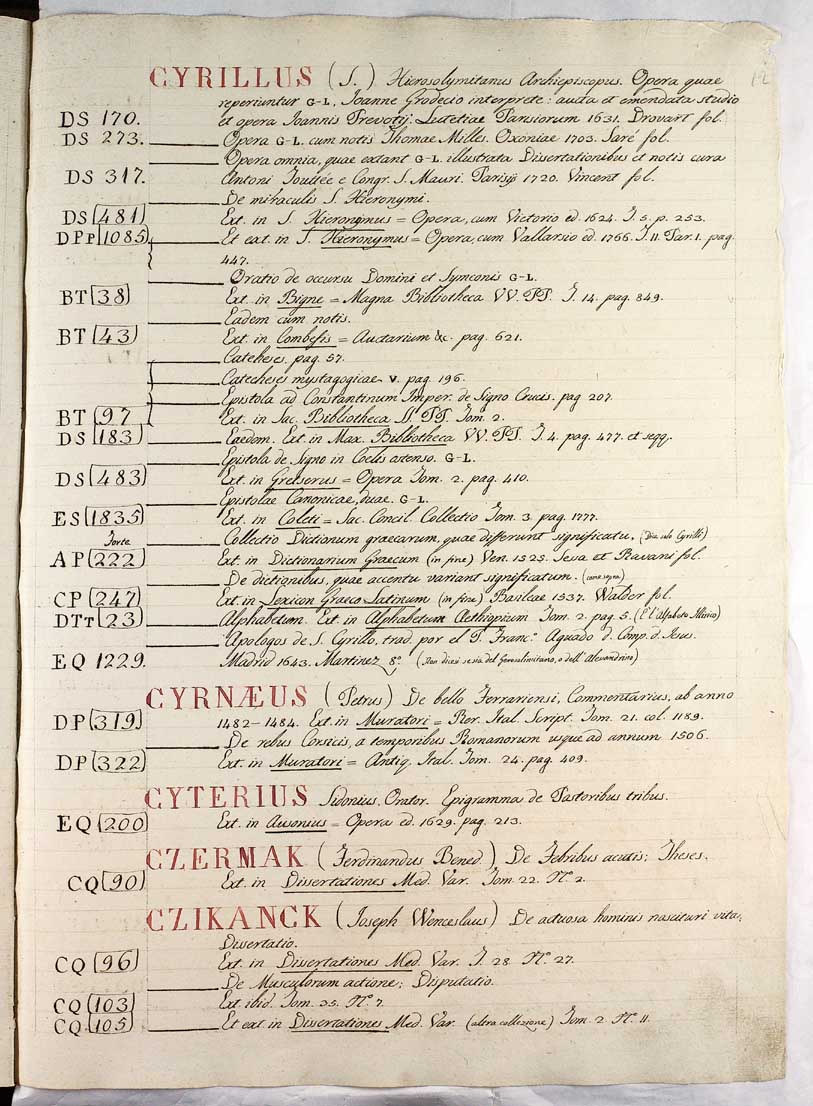 CYRILLUS (S.) Hierosolymitanus Archiepiscopus. Opera quae
reperiuntur G-L, Joanne Grodecio interprete: aucta et emendata studio
DS 170. et opera Joannis Prevotij. Lutetiae Parisiorum 1631. Drovart fol.
DS 273. Opera G-L. cum notis Thomae Milles. Oxoniae 1703. Saré fol.
Opera omnia, quae extant G-L. illustrata Dissertationibus et notis cura
DS 317. Antoni Touttée e Congr. S. Mauri. Parisijs 1720. Vincent fol.
De miraculis S. Hieronymi.
DS 481 Ext. in S. Hieronymus = Opera, cum Victorio ed. 1624. T. 5. p. 253.
DPp 1085 Et ext. in S. Hieronymus = Opera, cum Vallarsio ed. 1766. T. 11. Par. 1. pag.
447.
Oratio de occursu Domini et Symeonis G-L.
BT 38 Ext. in Bigne = Magna Bibliotheca VV. PP. T. 14. pag. 849.
Eadem cum notis.
BT 43 Ext. in Combefis = Auctarium &c. pag. 621.
Catecheses. pag. 57.
Catecheses mystagogicae V. pag. 196.
Epistola ad Constantinum Imper. de Signo Crucis. pag 207.
BT 97 Ext. in Sac. Bibliotheca SS. PP. Tom. 2.
DS 183 Eaedem. Ext. in Max. Bibliotheca VV. PP. T. 4. pag. 477. et seqq.
Epistola de Signo in Coelis ostenso. G-L.
DS 483 Ext. in Gretserus = Opera Tom. 2. pag. 410.
Epistolae Canonicae, duae. G-L.
ES 1835 Ext. in Coleti = Sac. Concil. Collectio Tom. 3. pag. 1777.
Forte Collectio Dictionum graecarum, quae differunt significatu. (Dice solo Cyrilli)
AP 222 Ext. in Dictionarium Graecum (in fine) Ven. 1525. Sessa et Ravani fol.
De dictionibus, quae accentu variant significatum. (come sopra)
CP 247 Ext. in Lexicon Graeco Latinum (in fine) Basileae 1537. Walder fol.
DTt 23 Alphabetum. Ext. in Alphabetum Aethiopicum Tom. 2. pag. 5. (È l'Alfabeto Illirico)
Apologos de S. Cyrillo, trad. por el P. Franc.º Aguado d. Comp. d. Jesus.
EQ 1229. Madrid 1643. Martinez 8º (Non dicesi se sia del Gerosolimitano, o dell'Alessandrino)
CYRNÆUS (Petrus) De bello Ferrariensi, Commentarius, ab anno
DP 319 1482-1484. Ext. in Muratori = Rer. Ital. Script. Tom. 21. col. 1189.
De rebus Corsicis, a temporibus Romanorum usque ad annum 1506.
DP 322 Ext. in Muratori = Antiq. Ital. Tom. 24. pag. 409.
CYTERIUS Sidonius, Orator. Epigramma de Pastoribus tribus.
EQ 200 Ext. in Ausonius = Opera ed. 1629. pag. 213.
CZERMAK (Ferdinandus Bened.) De Febribus acutis; Theses.
CQ 90 Ext. in Dissertationes Med. Var. Tom. 22. Nº 2.
CZIKANCK (Joseph Wenceslaus) De actuosa hominis nascituri vita;
Dissertatio.
CQ 96 Ext. in Dissertationes Med. Var. T. 28. Nº 27.
De Musculorum actione; Disputatio.
CQ 103 Ext. ibid. Tom. 35. Nº 7.
CQ 105 Et ext. in Dissertationes Med. Var. (altra collezione) Tom. 2. Nº 11.